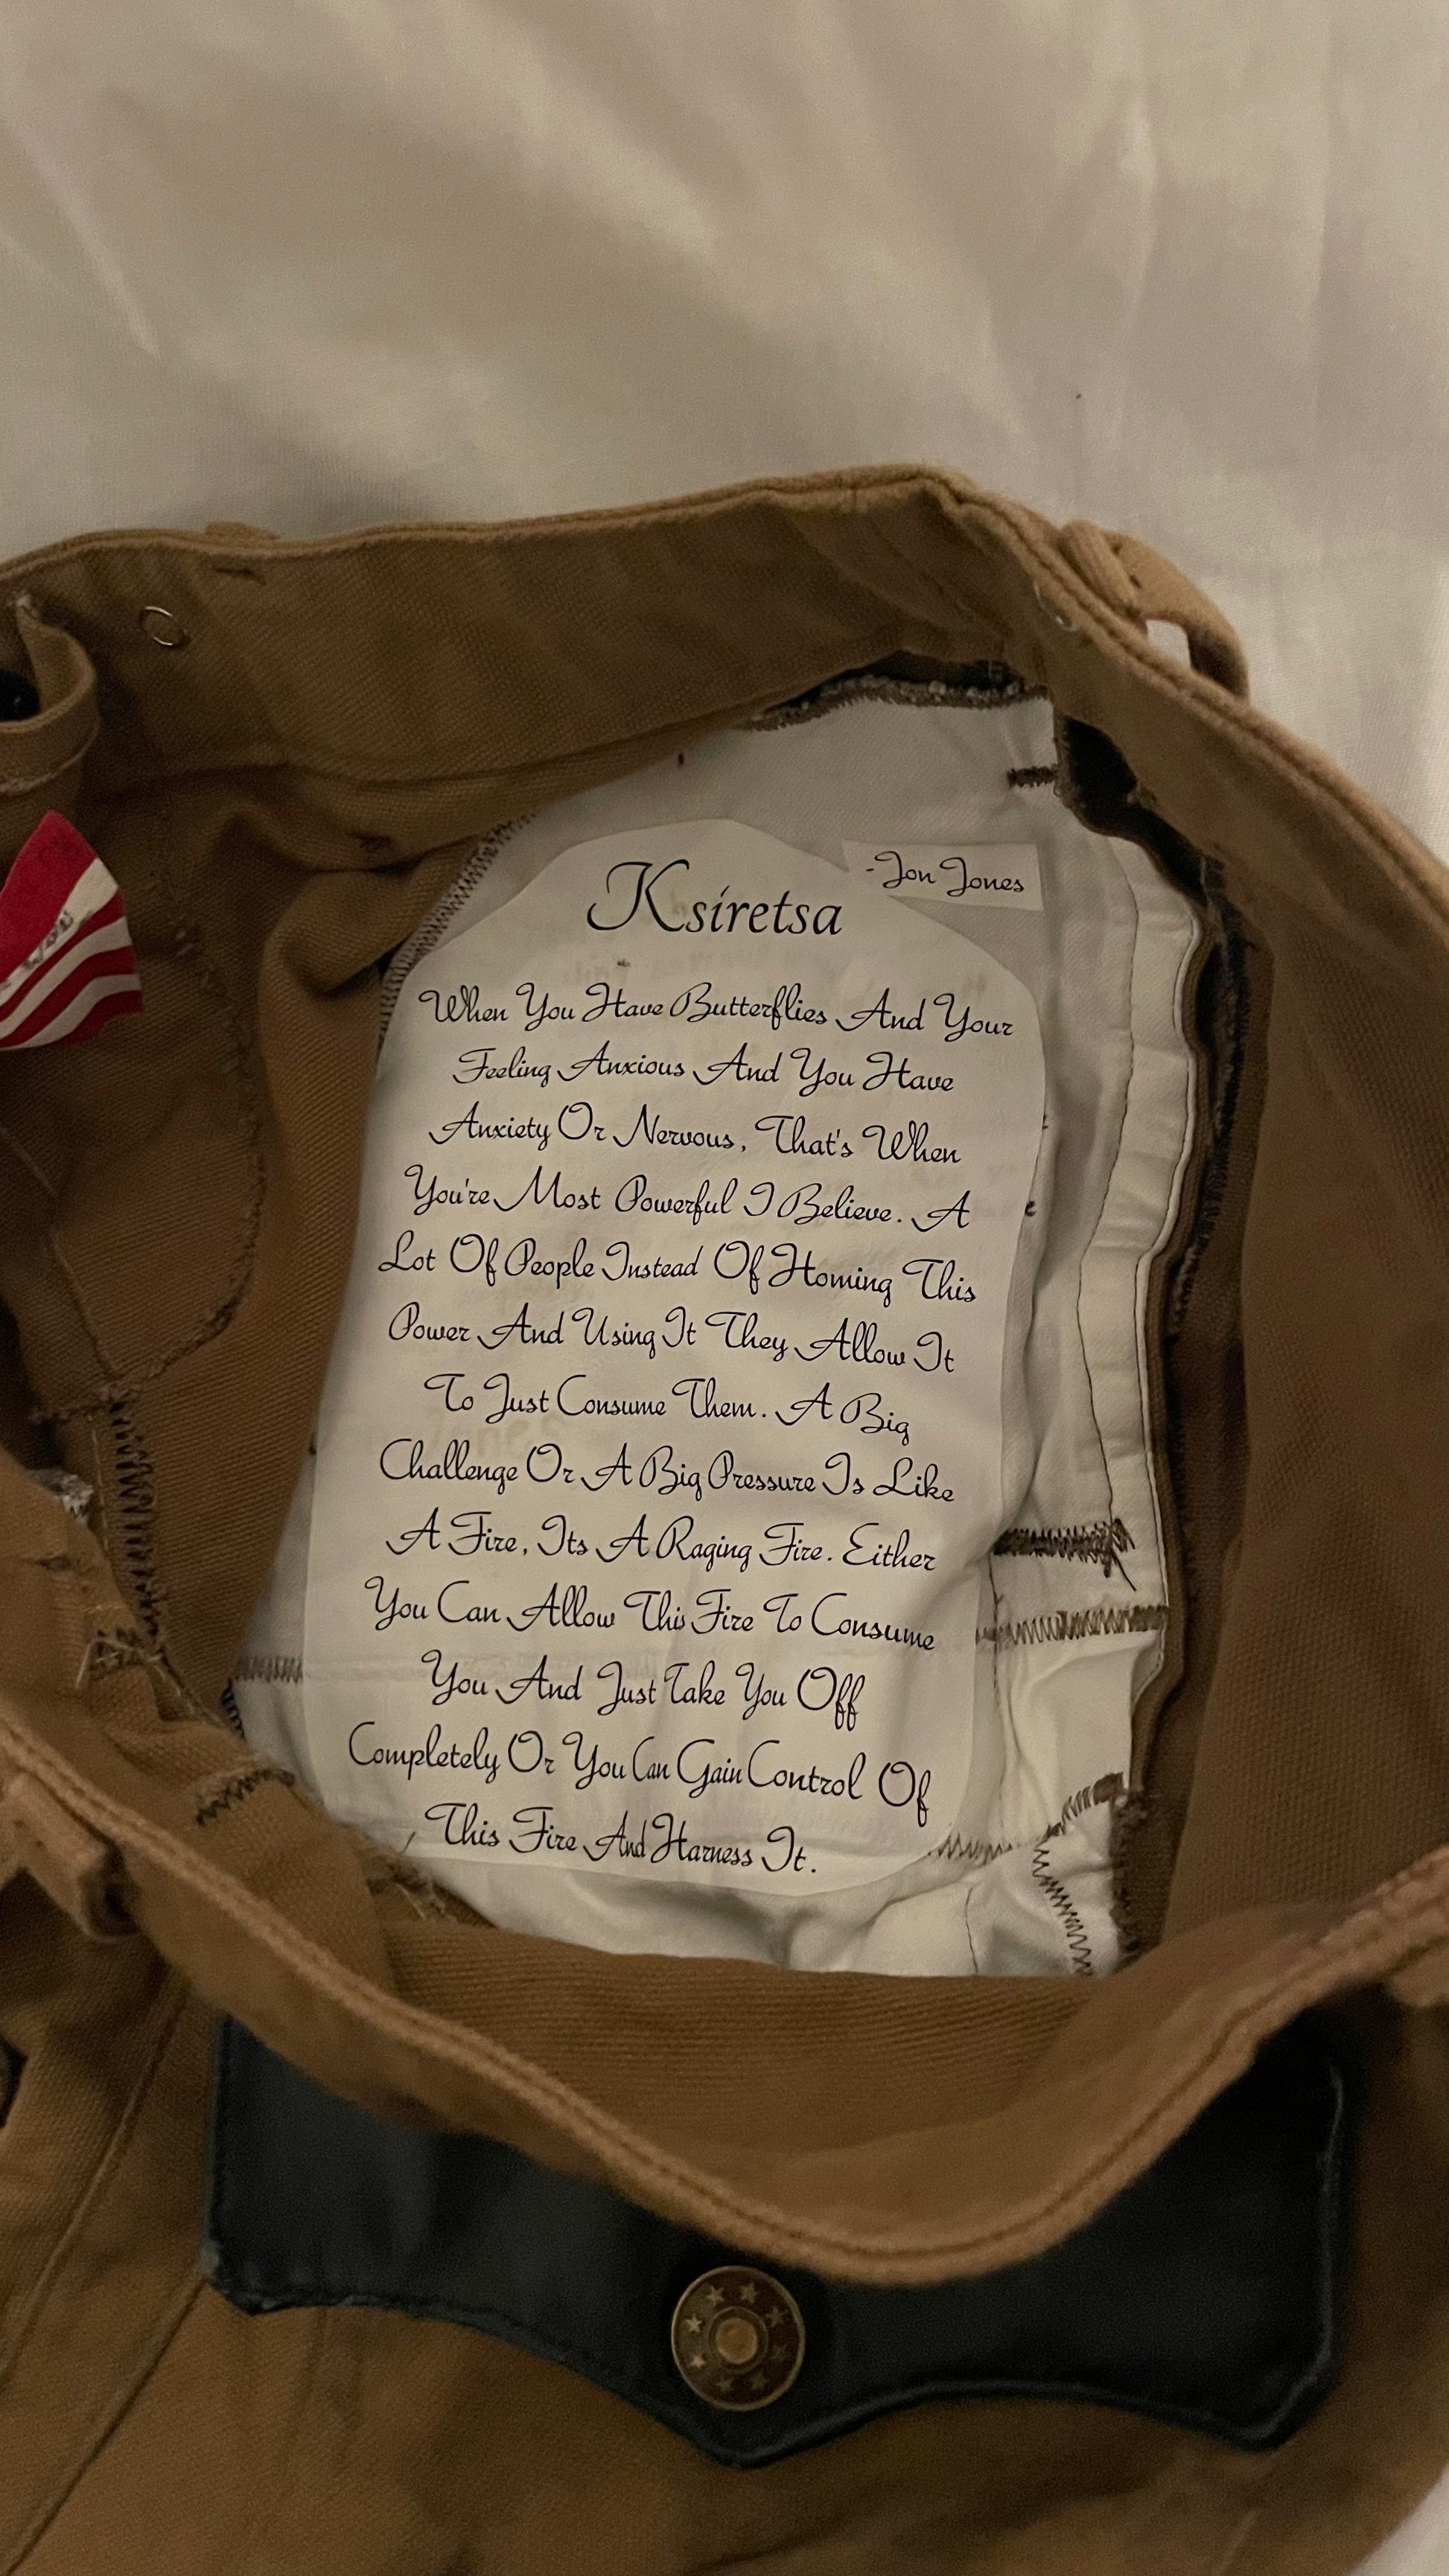 -Jon Jones
Ksiretsa
When You Have Butterflies And Your
Feeling Anxious And You Have
Anxiety Or Nervous, That's When
You're Most Powerful I Believe. A
Lot Of People Instead Of Homing This
Power And Using It They Allow It
To Just Consume Them. A Big
Challenge Or A Big Pressure Is Like
A Fire, Its A Raging Fire. Either
You Can Allow This Fire To Consume
You And Just Take You Off
Completely Or You Can Gain Control Of
This Fire And Harness It.